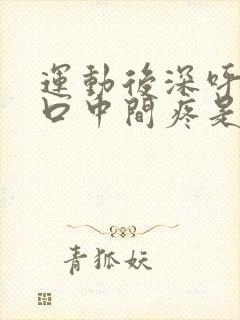 運動後深呼
口中間疼是
青狐妖